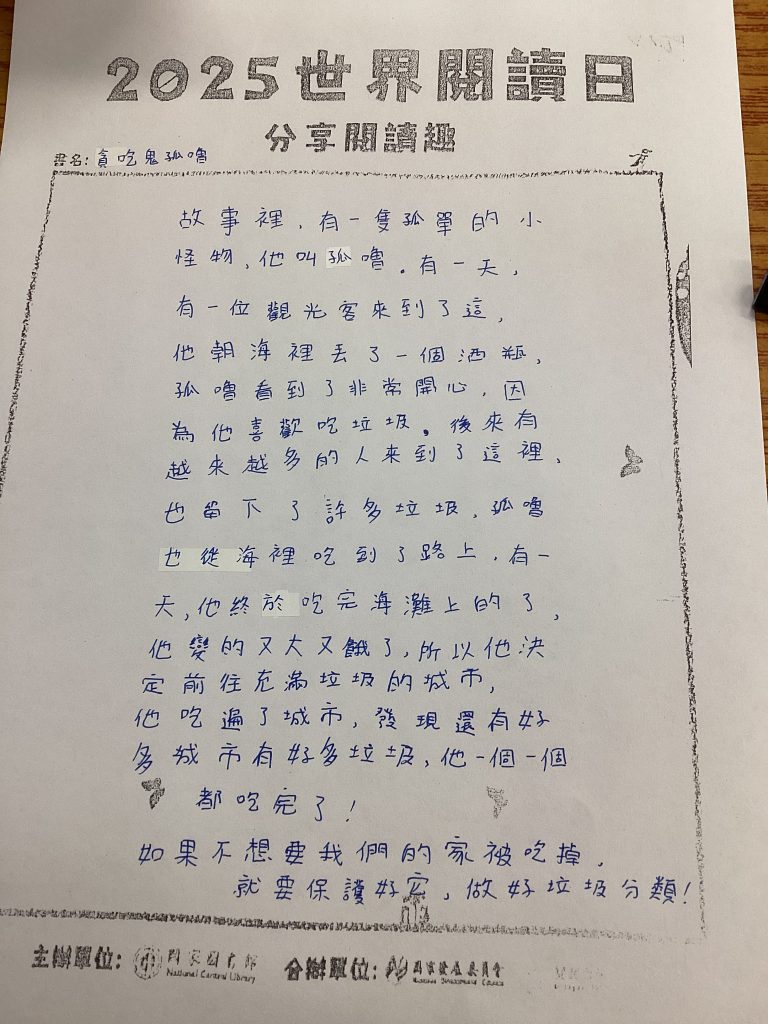 2025世界閱讀日
分享閱讀趣
書名:貪吃鬼孤嚕
故事裡,有一隻孤單的小
怪物,他叫孤嚕。有一天,
有一位觀光客來到了這,
他朝海裡丟了一個酒瓶,
孤嚕看到了非常開心,因
為他喜歡吃垃圾。後來有
越來越多的人來到了這裡,
也留下了許多垃圾,孤嚕
也從海裡吃到了路上,有一
天,他終於吃完海灘上的了,
他變的又大又餓了,所以他決
定前往充滿垃圾的城市,
他吃遍了城市,發現還有好
多城市有好多垃圾,他一個一個
都吃完了!
如果不想要我們的家被吃掉,
就要保護好它,做好垃圾分類!
主辦單位: 國家圖書館
National Central Library
合辦單位: 國家發展委員會
National Development Council